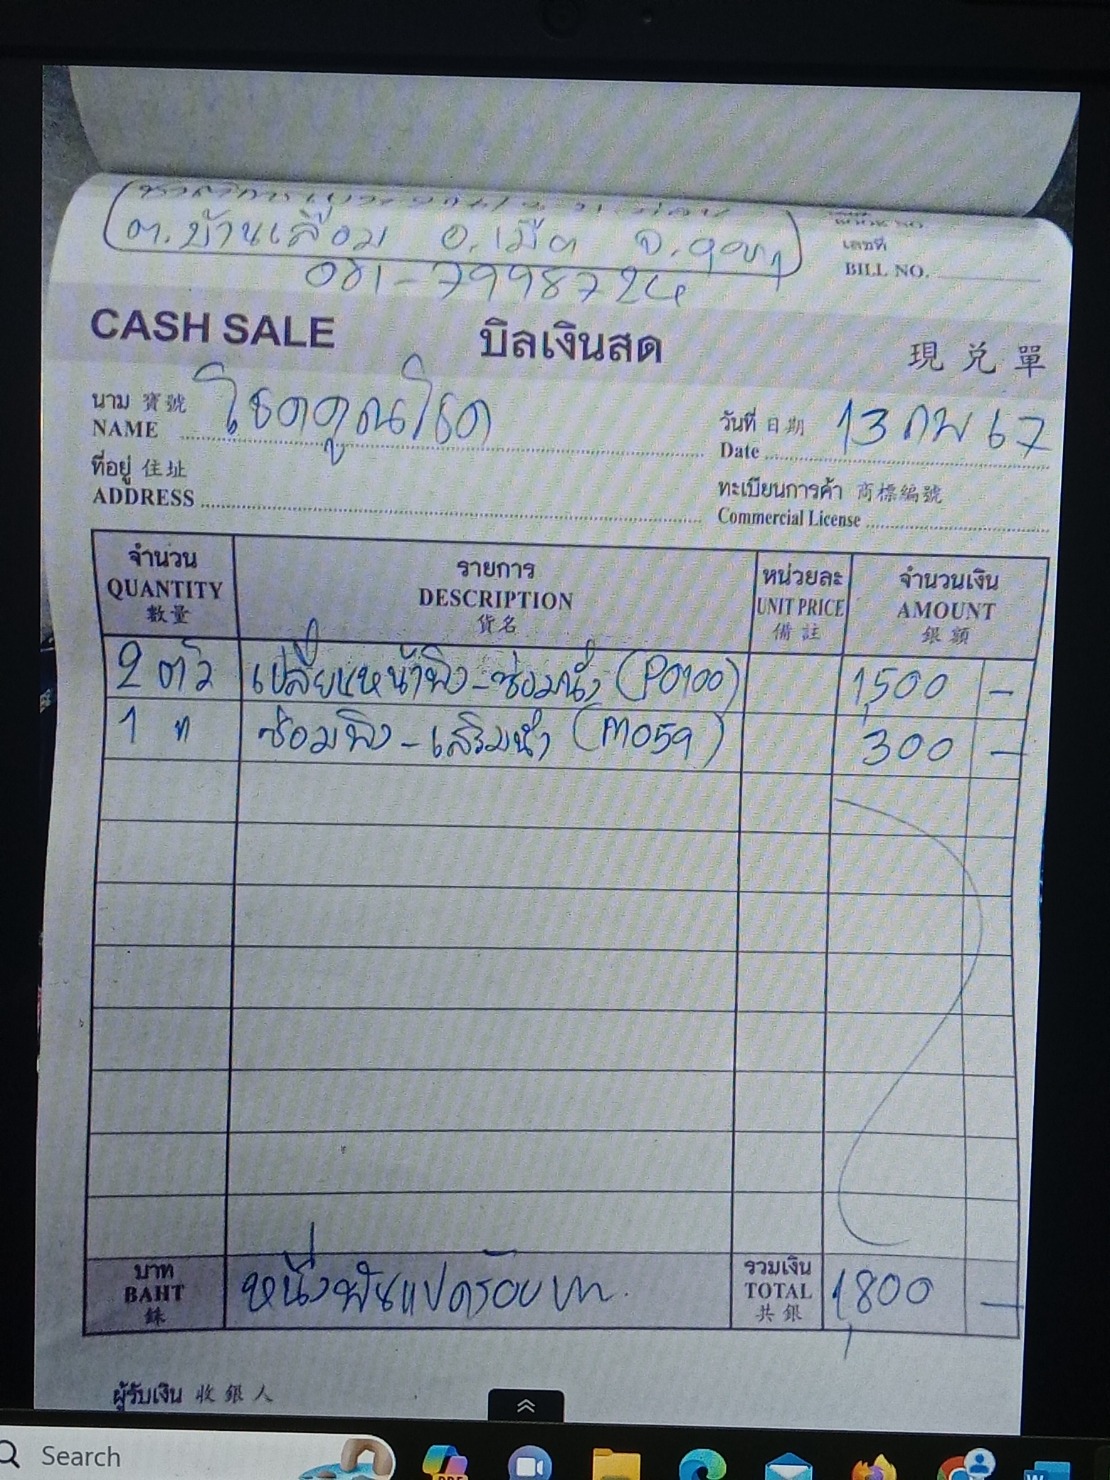 ต.บ้านเลื่อม อ.เมือ จ.อุดร
081-7998724
เลขที่
BILL NO.
CASH SALE บิลเงินสด 現兑單
นาม 寶號 NAME โชคคูณโชค
วันที่ 日期 Date 13 กพ 67
ที่อยู่ 住址 ADDRESS
ทะเบียนการค้า 商標編號 Commercial License
จำนวน QUANTITY 數量 รายการ DESCRIPTION 貨名 หน่วยละ UNIT PRICE 備註 จำนวนเงิน AMOUNT 銀額
2 ตัว เปลี่ยนหน้าพิง-ซ่อมนั่ง (P0100) 1,500 -
1 ท ซ่อมพิง-เสริมนั่ง (M059) 300 -
บาท BAHT 銖 หนึ่งพันแปดร้อยบาท. รวมเงิน TOTAL 共銀 1,800 -
ผู้รับเงิน 收銀人
Search